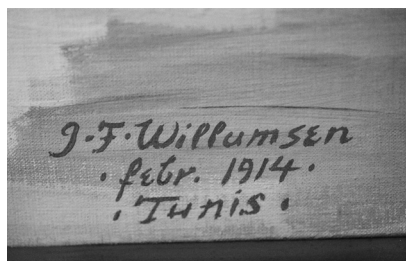 J.F. Willumsen
· febr. 1914 ·
· Tunis ·